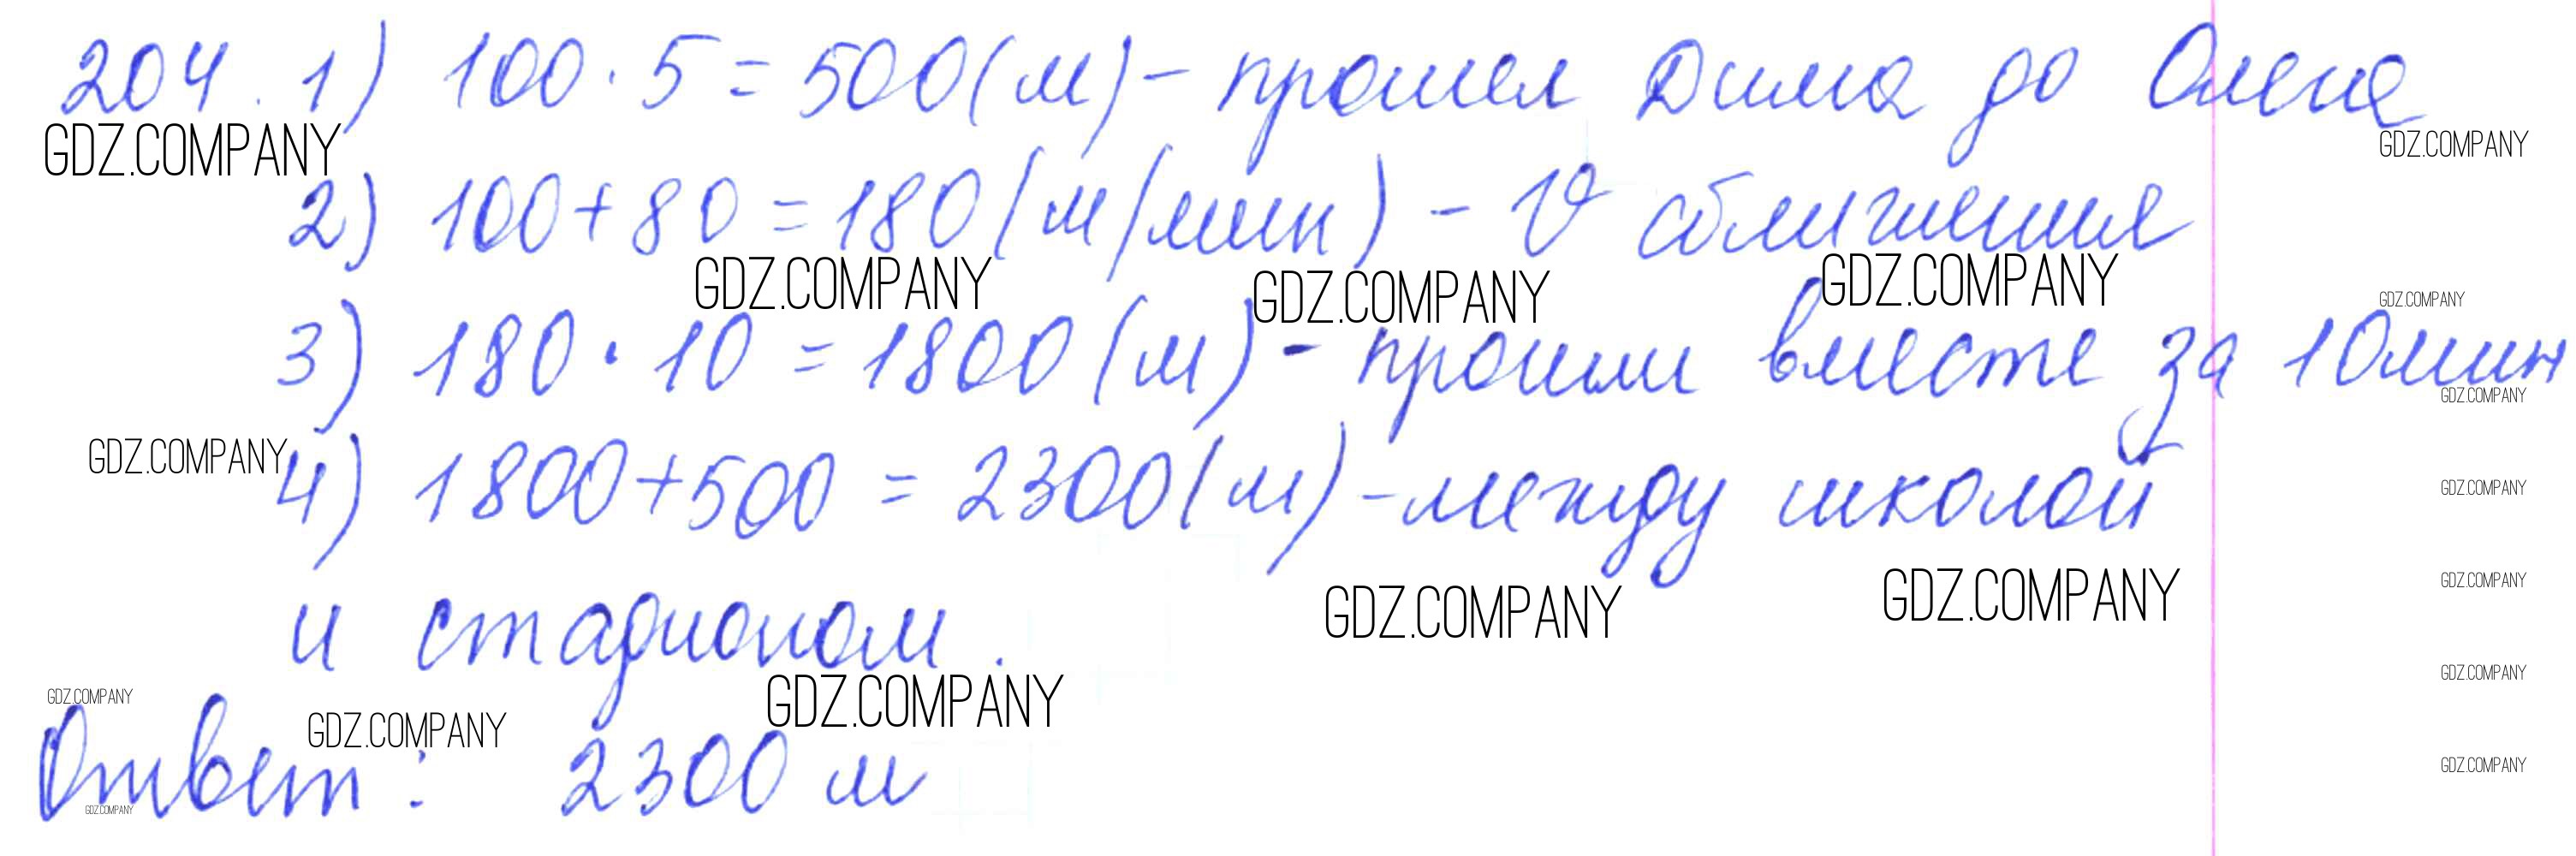 204. 1) 100 · 5 = 500 (м) - прошел Дима до Олега
GDZ.COMPANY GDZ.COMPANY
2) 100 + 80 = 180 (м/мин) - V сближения
GDZ.COMPANY GDZ.COMPANY GDZ.COMPANY
GDZ.COMPANY
3) 180 · 10 = 1800 (м) - прошли вместе за 10мин
GDZ.COMPANY
GDZ.COMPANY
4) 1800 + 500 = 2300 (м) - между школой
GDZ.COMPANY
GDZ.COMPANY GDZ.COMPANY GDZ.COMPANY
и стадионом.
GDZ.COMPANY
GDZ.COMPANY GDZ.COMPANY GDZ.COMPANY
Ответ: 2300 м
GDZ.COMPANY
GDZ.COMPANY